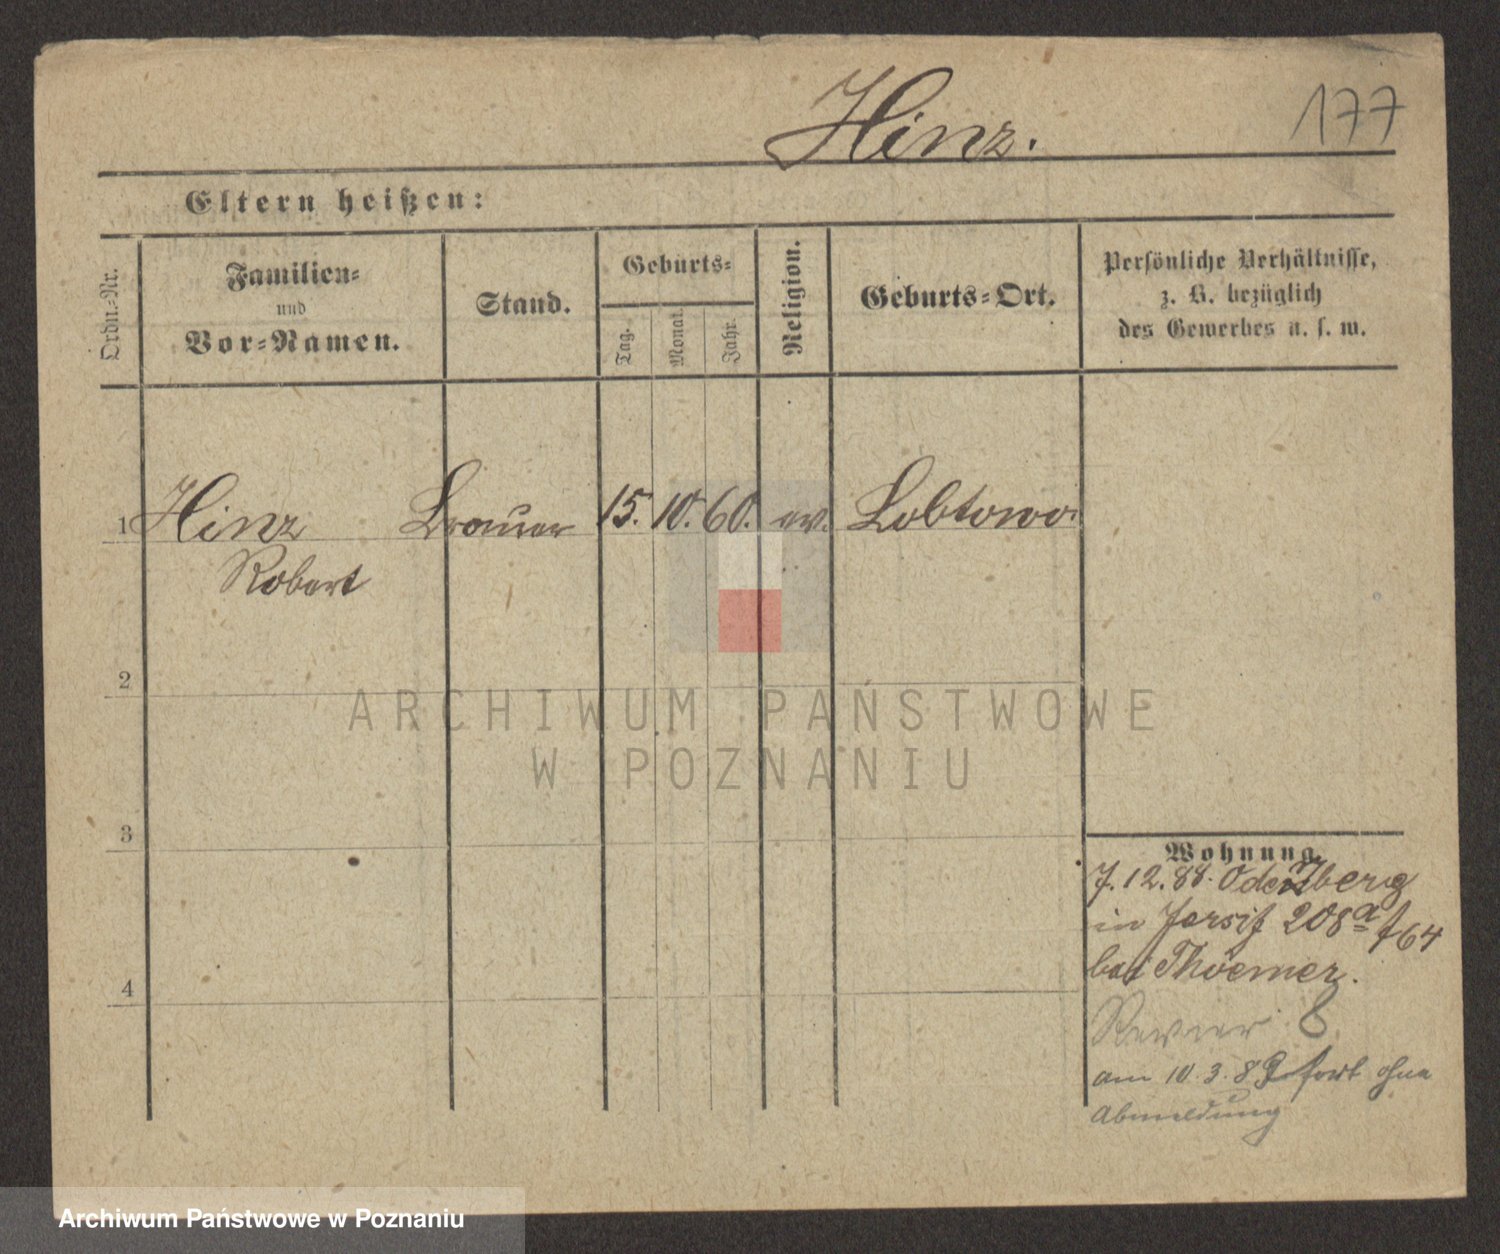 Hinz.
177
Eltern heißen:
Ordn.-Nr.
Familien-
und
Vor-Namen.
Stand.
Geburts-
Tag.
Monat.
Jahr.
Religion.
Geburts-Ort.
Persönliche Verhältnisse,
z. B. bezüglich
des Gewerbes u. s. w.
1 Hinz Brauer 15. 10. 60. ev. Lobtowo.
Robert
2
ARCHIWUM PAŃSTWOWE
W POZNANIU
3
Wohnung.
7.12.88. Odenberg
in Jersitz 208a f64
4
bei Thoemer.
Revier 8
am 10.3.89 fort ohne
Abmeldung
Archiwum Państwowe w Poznaniu